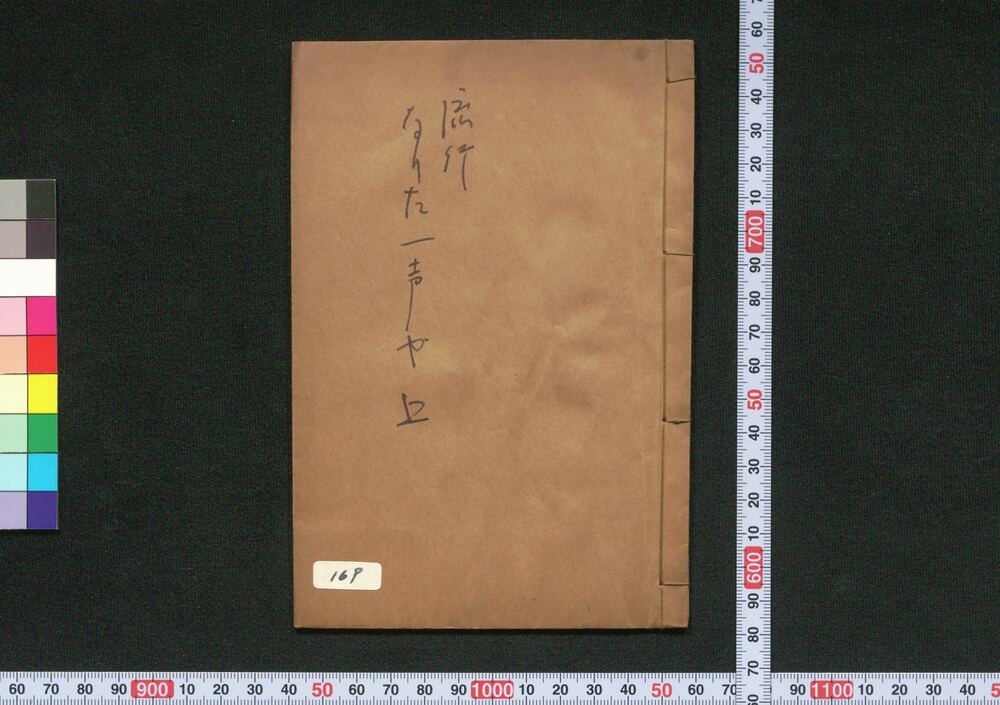 流行
なりた一声や 上
169
60 50 40 30 20 10 700 90 80 70 60 50 40 30 20 10 600 90 80 70 60
60 70 80 90 900 10 20 30 40 50 60 70 80 90 1000 10 20 30 40 50 60 70 90 1100 10 20 30 40 5